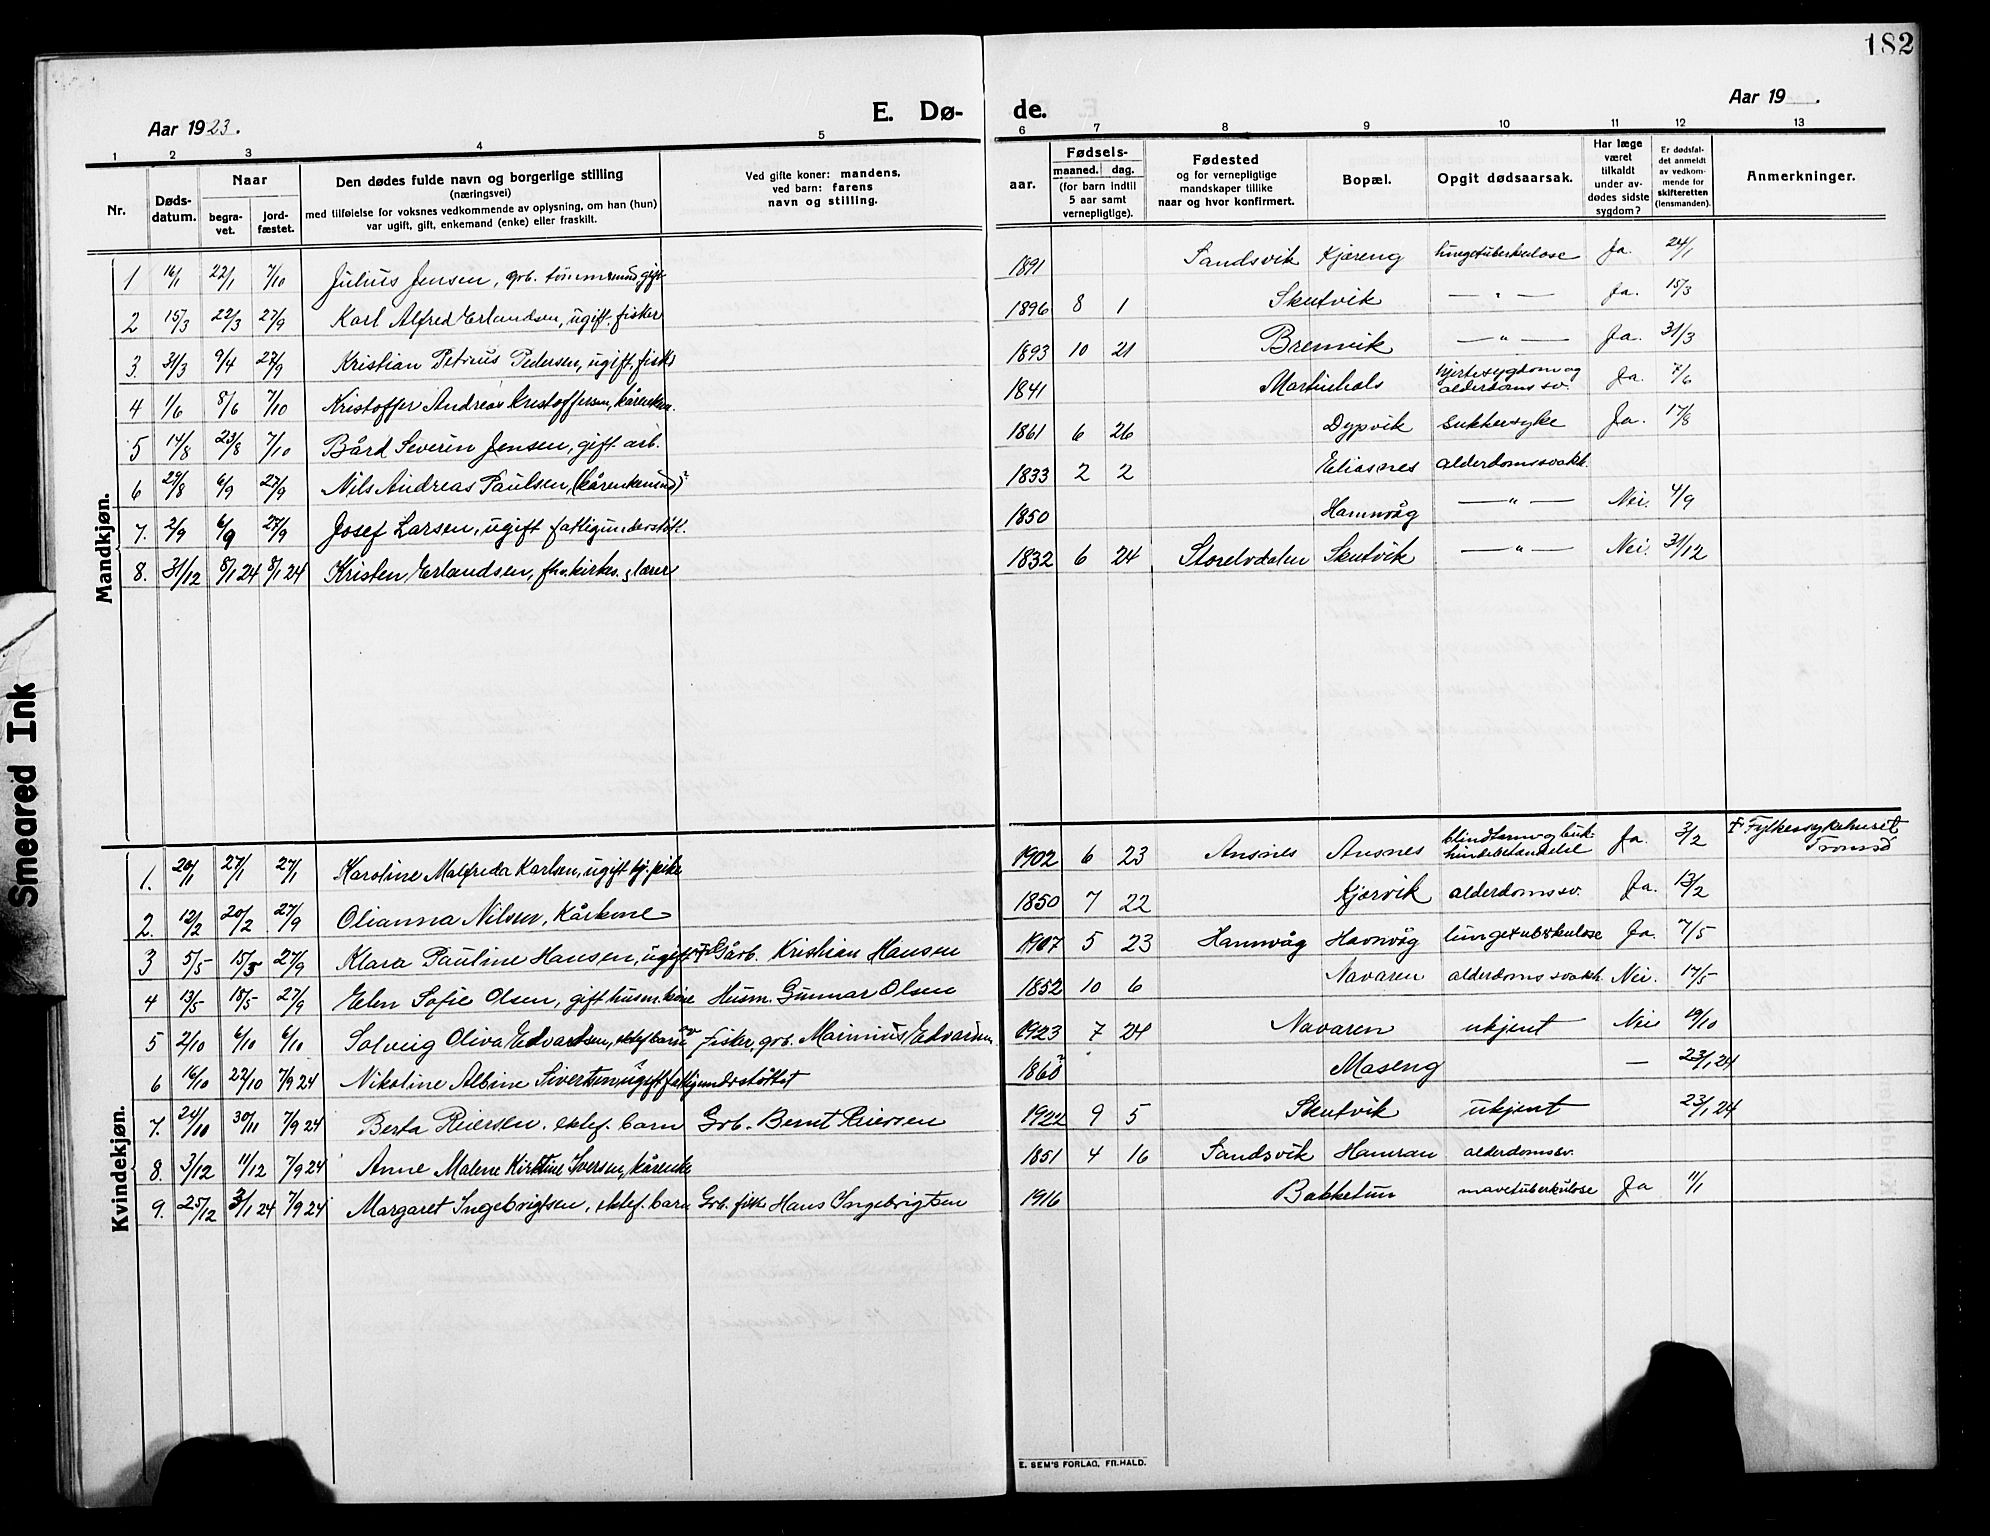 182
Aar 1923.
E. Dø-
de.
Aar 19 .
1 2 3 4 5 6 7 8 9 10 11 12 13
Nr.
Døds-
datum.
Naar
begra-
vet.
jord-
fæstet.
Den dødes fulde navn og borgerlige stilling
(næringsvei)
med tilføielse for voksnes vedkommende av oplysning, om han (hun)
var ugift, gift, enkemand (enke) eller fraskilt.
Ved gifte koner: mandens,
ved barn: farens
navn og stilling.
aar.
Fødsels-
maaned. dag.
(for barn indtil
5 aar samt
vernepligtige).
Fødested
og for vernepligtige
mandskaper tillike
naar og hvor konfirmert.
Bopæl.
Opgit dødsaarsak.
Har læge
været
tilkaldt
under av-
dødes sidste
sygdom?
Er dødsfal-
det anmeldt
av vedkom-
mende for
skifteretten
(lensmanden).
Anmerkninger.
Mandkjøn.
1 16/1 22/1 7/10 Julius Jensen, grb. tømmermand gift 1891 Sandsvik Kjæreng lungetuberkulose Ja. 24/1
2 15/3 22/3 27/9 Karl Alfred Erlandsen, ugift. fisker 1896 8 1 Skutvik — " — Ja. 15/3
3. 31/3 9/4 27/9 Kristian Petrus Pedersen, ugift, fisker 1893 10 21 Brenvik — " — Ja. 31/3
4 1/6 8/6 7/10 Kristoffer Andreas Kristoffersen, kårenkem. 1841 Martinhals hjertesygdom og
alderdomssv. Ja. 7/6
5 14/8 23/8 7/10 Bård Severin Jensen, gift arb. 1861 6 26 Dypvik sukkersyke Ja. 17/8
6 29/8 6/9 27/9 Nils Andreas Paulsen, (kårenkemand)? 1833 2 2 Eliasnes alderdomssvakh.
7. 2/9 6/9 27/9 Josef Larsen, ugift fattigunderstøtt. 1850 Hamnvåg — " — Nei. 4/9
8. 31/12 8/1 24 8/1 24 Kristen Erlandsen, fhv. kirkes. & lærer 1832 6 24 Storelvdalen Skutvik — " — Nei. 31/12
Kvindekjøn.
1. 20/1 27/1 27/1 Karoline Malfreda Karlsen, ugift tj. pike 1902 6 23 Ansnes Ansnes blindtarm og buk-
hindebetændelse Ja. 3/2 † Fylkessykehuset
Tromsø
2. 12/2 20/2 27/9 Olianna Nilsen, Kårkone 1850 7 22 Kjervik alderdomssv. Ja. 13/2
3 5/5 15/5 27/9 Klara Pauline Hansen, ugift Gårb. Kristian Hansen 1907 5 23 Hamnvåg Havnvåg lungetuberkulose Ja. 7/5
4 13/5 18/5 27/9 Elen Sofie Olsen, gift husm. kone Husm. Gunnar Olsen 1852 10 6 Navaren alderdomssvakh. Nei. 17/5
5 2/10 6/10 6/10 Solveig Oliva Edvardsen, ektef. barn av Fisker, grb. Marinius Edvardsen 1923 7 24 Navaren ukjent Nei 19/10
6 16/10 22/10 7/9 24 Nikoline Albine Sivertsen, ugift fattigunderstøttet 1860? Maseng — 23/1 24
7. 24/10 30/11 7/9 24 Berta Reiersen, ektef. barn Grb. Bernt Reiersen 1922 9 5 Skutvik ukjent 23/1 24
8. 3/12 11/12 7/9 24 Anne Malene Kirstine Iversen, kårenke 1851 4 16 Sandsvik Hamran alderdomssv.
9. 25/12 3/1 24 7/9 24 Margaret Ingebrigtsen, ektef. barn Grb. fisk. Hans Ingebrigtsen 1916 Bakketun mavetuberkulose Ja 11/1
E. SEM'S FORLAG, FR.HALD.
Smeared Ink